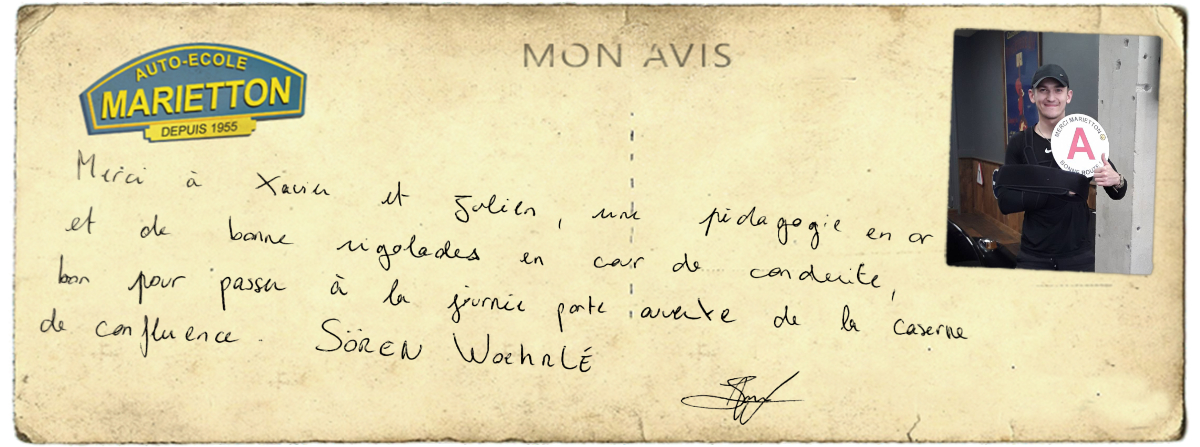 AUTO-ECOLE
MARIETTON
DEPUIS 1955
MON AVIS
MERCI MARIETTON
A
BONNE ROUTE
Merci à Xavier et Julien, une pédagogie en or
et de bonne rigolades en cour de conduite,
bon pour passer à la journée porte ouverte de la caserne
de confluence.
SÖREN WoehRLÉ